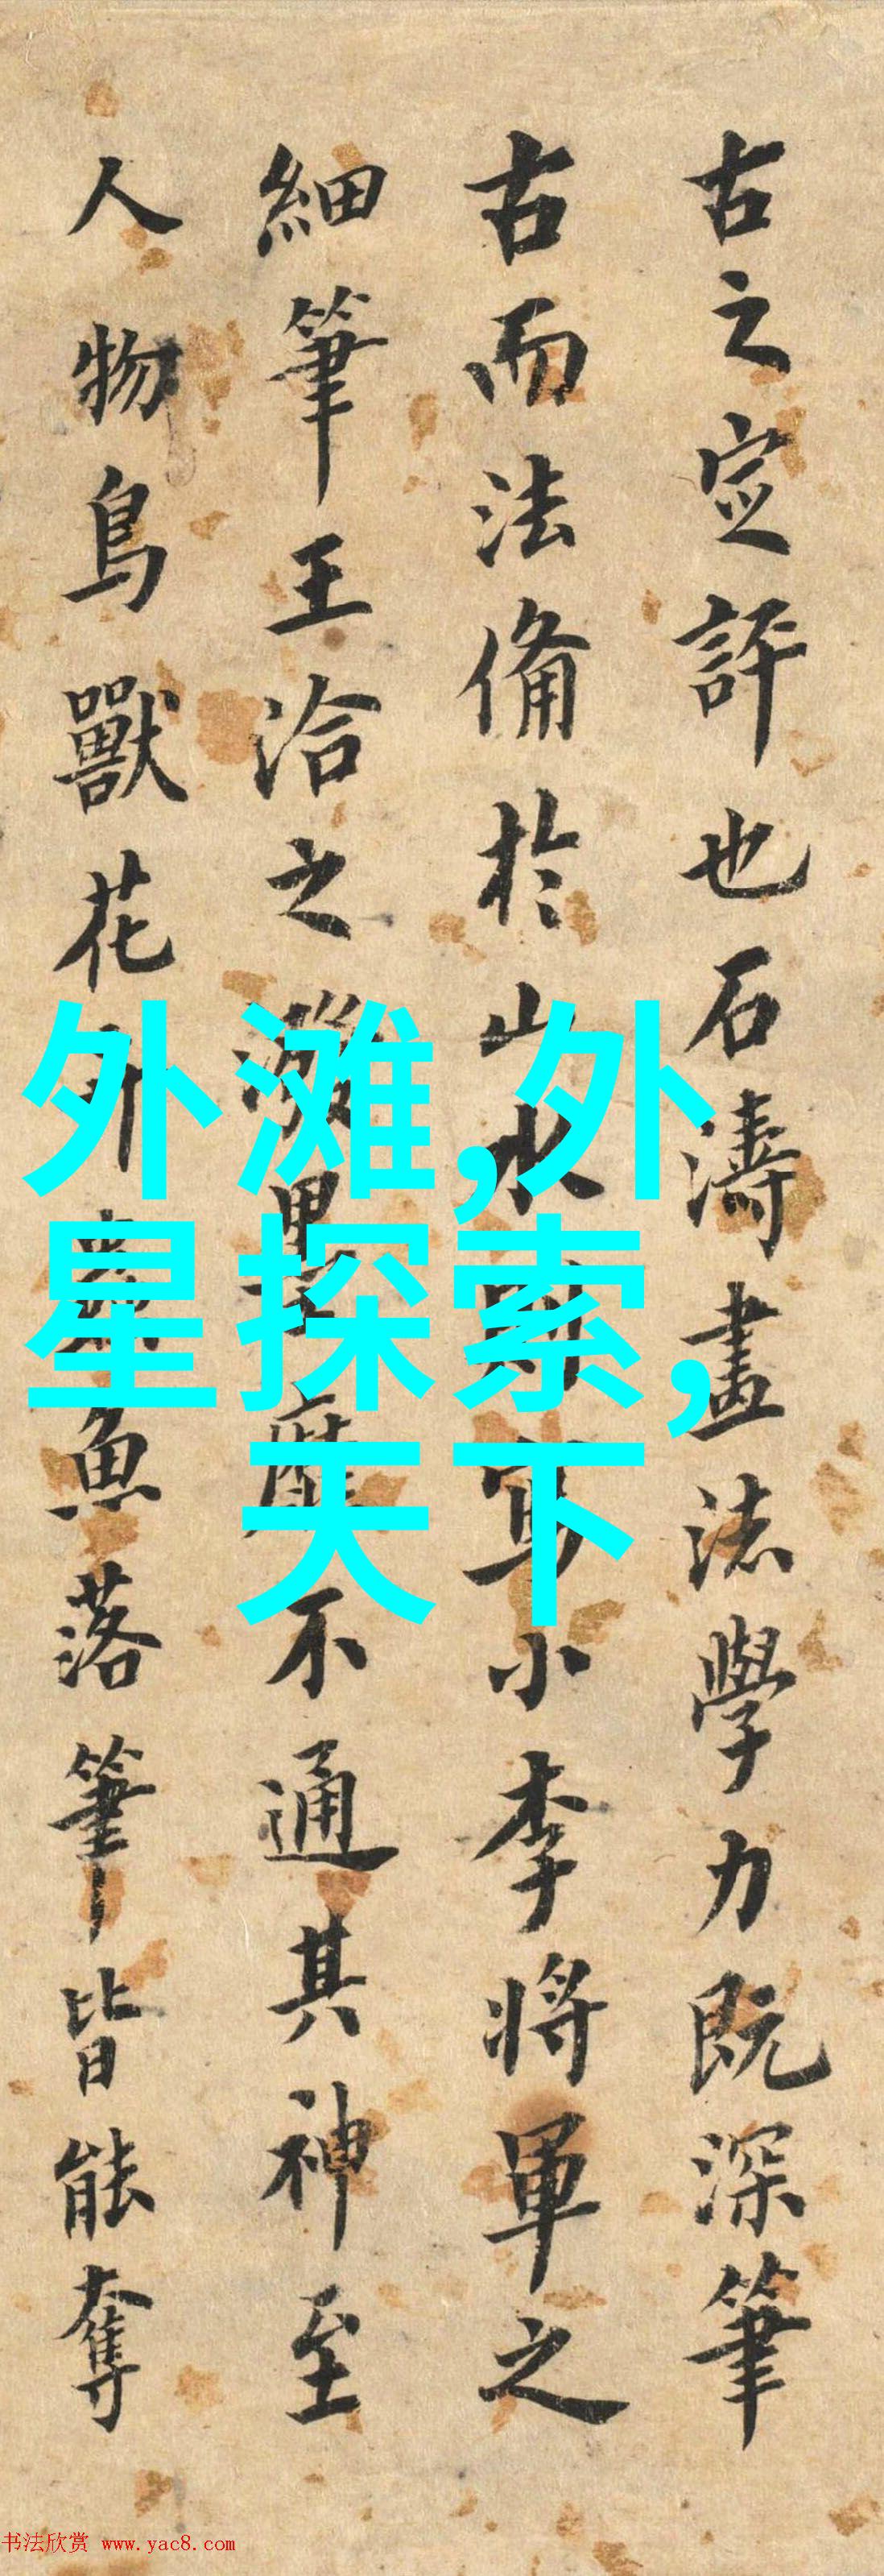 古之定評也石濤畫法學力既深筆
古而法備於山水則寫小李將軍之
細筆王洽之潑墨靡不通其神至
人物鳥獸花卉蟲魚落筆皆能奪
外滩,外
星探索,
天下
书法欣赏 www.yac8.com